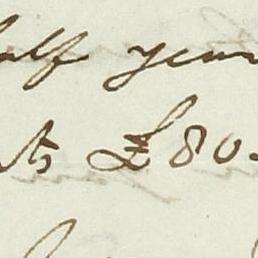 half year
£80